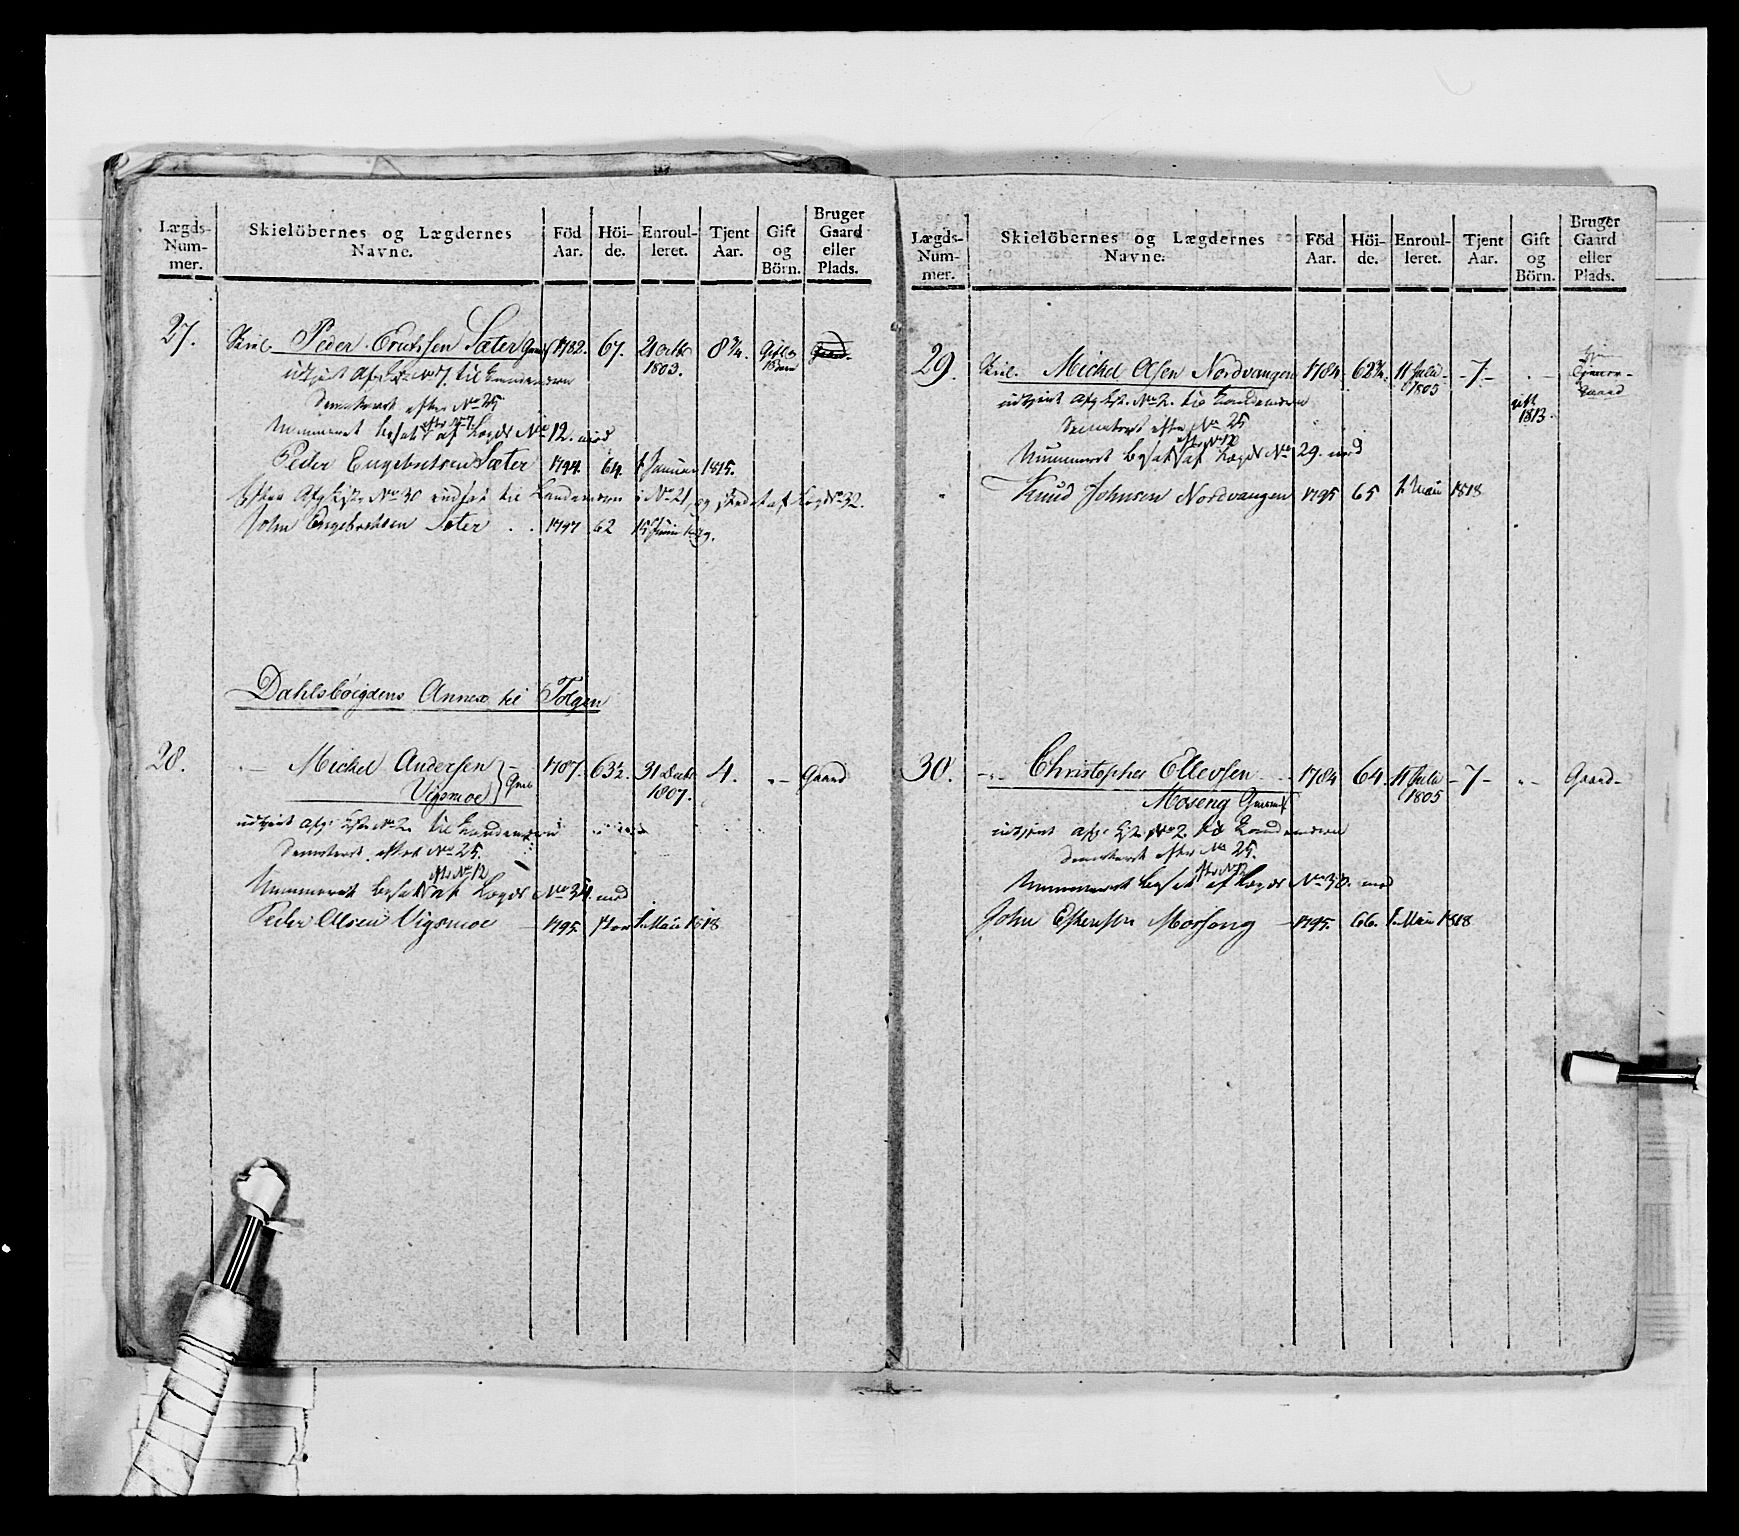 Lægds-Num-mer.
Skielöbernes og Lægdernes Navne.
Föd Aar.
Höi-de.
Enroul-leret.
Tjent Aar.
Gift og Börn.
Bruger Gaard eller Plads.
27. Peder Erichsen Sæter 1782. 67. 21 octbr 1803. 8¾. Gift
No 7. til Landeværn
efter No 25
Nummeret besat af Lægds No 12. med
efter No 7
Peder Engebretsen Sæter 1794. 64. 1 Januar 1815.
No 30 til Landeværn No 21, og af Lægd No 32.
John Engebretsen Sæter 1797 62 15 Juni
Dahlsböigdens Annex til Tolgen
28. Michel Andersen Vigsmoe 1787. 63½. 31 Decbr 1807. 4. Gaard
udtjent No 2. til Landeværn
efter No 25.
efter No 12
Nummeret besat af Lægds No 34. med
Peder Olsen Vigsmoe 1795. 1 Maii 1818
Lægds-Num-mer.
Skielöbernes og Lægdernes Navne.
Föd Aar.
Höi-de.
Enroul-leret.
Tjent Aar.
Gift og Börn.
Bruger Gaard eller Plads.
29. Michel Olsen Nordvangen 1784. 62¾. 11 Julii 1805 -7- Gaard
udtjent No 2. til Landeværn
gift 1813.
efter No 25
efter No 12
Nummeret besat af Lægds No 29. med
Knud Johnsen Nordvangen 1795 65 1 Maii 1818
30. Christopher Ellevsen Moseng 1784 64. 11 Julii 1805 -7- Gaard-
udtjent No 2. til Landeværn
efter No 25.
efter No 12
Nummeret besat af Lægds No 30. med
John Moseng 1795. 66. 1 Maii 1818